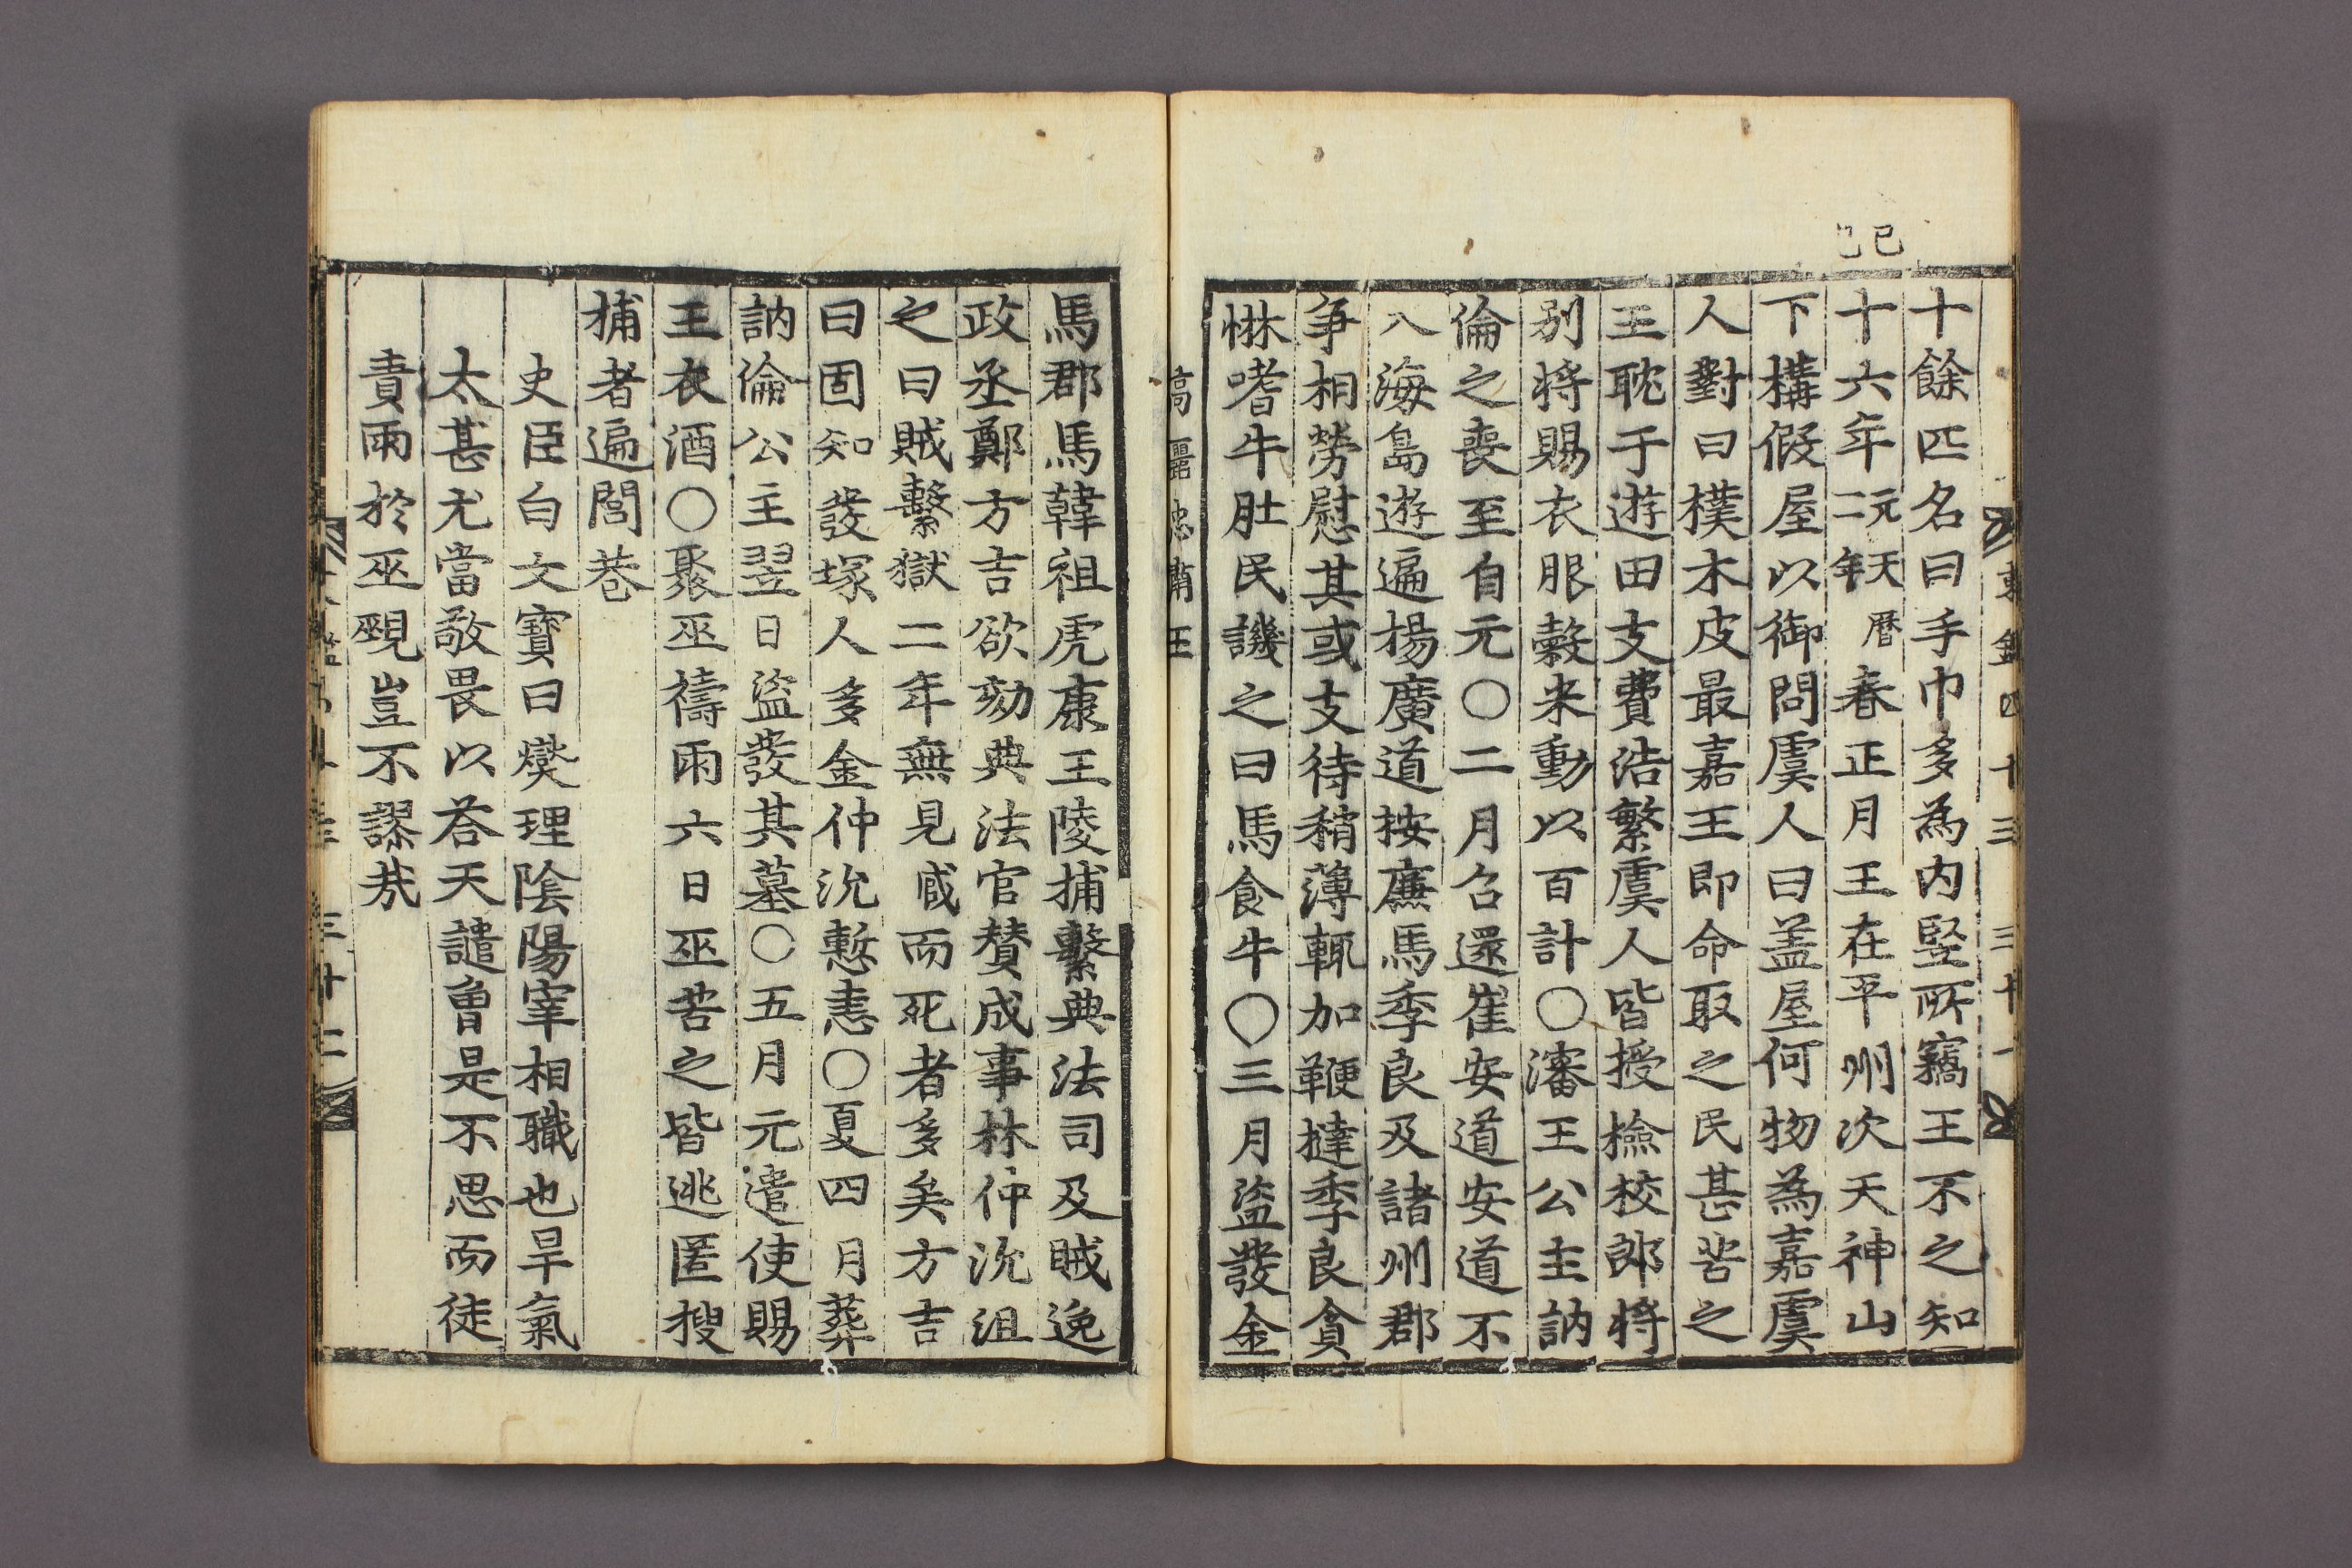 己巳
十餘匹名曰手巾多為内竪所竊王不之知
十六年元天曆二年春正月王在平州次天神山
下構假屋以御問虞人曰盖屋何物為嘉虞
人對曰樸木皮最嘉王即命取之民甚苦之
王耽于遊田支費浩繁虞人皆授檢校郎將
别將賜衣服糓米動以百計○瀋王公主訥
倫之喪至自元○二月召還崔安道安道不
八海島遊遍楊廣道按廉馬季良及諸州郡
爭相勞慰其或支待稍薄輒加鞭撻季良貪
惏嗜牛肚民譏之曰馬食牛○三月盜發金
高麗忠肅王
馬郡馬韓祖虎康王陵捕繫典法司及賊逸
政丞鄭方吉欲劾典法官賛成事林仲沇沮
之曰賊繫獄二年無見贓而死者多矣方吉
曰固知發塚人多金仲沇慙恚○夏四月葬
訥倫公主翌日盜發其墓○五月元遣使賜
王衣酒○聚巫禱雨六日巫苦之皆逃匿搜
捕者遍閭巷
史臣白文寶曰燮理隂陽宰相職也旱氣
太甚尤當敬畏以荅天譴曾是不思而徒
責雨於巫覡豈不謬㢤